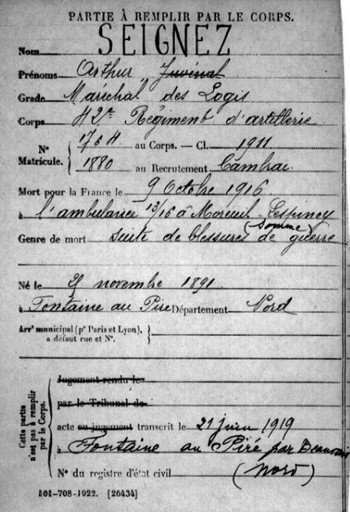 PARTIE À REMPLIR PAR LE CORPS.
Nom SEIGNEZ
Prénoms Arthur Juvénal
Grade Maréchal des Logis
Corps 42e Régiment d'artillerie
N° 1704 au Corps. — Cl. 1911
Matricule. 1880 au Recrutement Cambrai
Mort pour la France le 9 Octobre 1916
à l'ambulance 13/16 à Moreuil
(Somme)
Genre de mort suite de blessures de guerre
Né le novembre 1891
à Fontaine au Pire Département Nord
Arrt municipal (pr Paris et Lyon),
à défaut rue et N°.
Cette partie
n'est pas à remplir
par le Corps.
Jugement rendu le
par le Tribunal de
acte ou jugement transcrit le 21 juin 1919
à Fontaine au Piré par Beauvois
(Nord)
N° du registre d'état civil
101-708-1922. [26434]